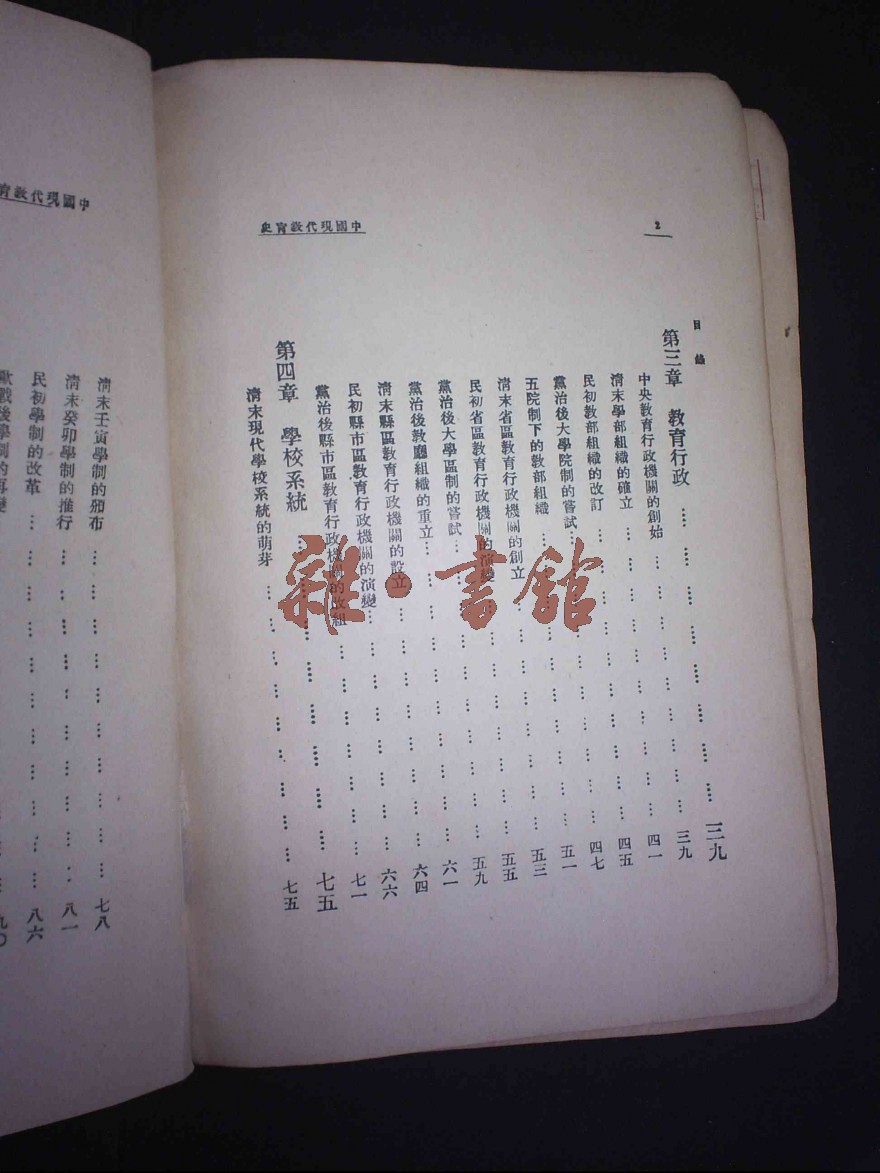 中國現代教育史
2
目錄
第三章 教育行政 …… 三九
中央教育行政機關的創始 …… 三九
清末學部組織的確立 …… 四一
民初教部組織的改訂 …… 四五
黨治後大學院制的嘗試 …… 四七
五院制下的教部組織 …… 五一
清末省區教育行政機關的創立 …… 五三
民初省區教育行政機關的演變 …… 五五
黨治後大學區制的嘗試 …… 五九
黨治後教廳組織的重立 …… 六一
清末縣區教育行政機關的設立 …… 六四
民初縣市區教育行政機關的演變 …… 六六
黨治後縣市區教育行政機關的改組 …… 七一
第四章 學校系統 …… 七五
清末現代學校系統的萌芽 …… 七五
中國現代教育
清末壬寅學制的頒布 …… 七八
清末癸卯學制的推行 …… 八一
民初學制的改革 …… 八六
歐戰後學制的再變 …… 九〇
雜·書館